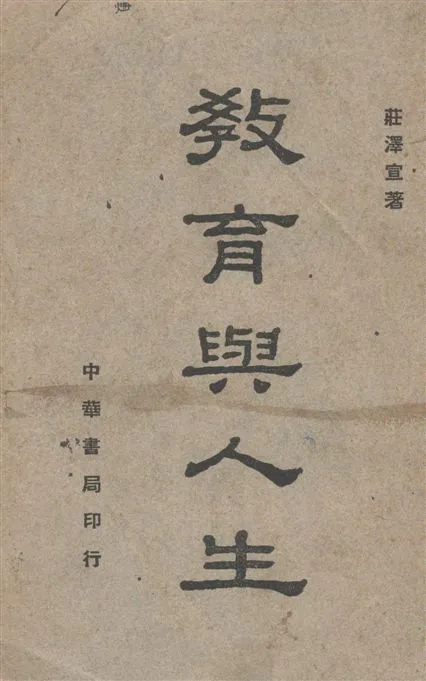 莊澤宣著
教育與人生
中華書局印行